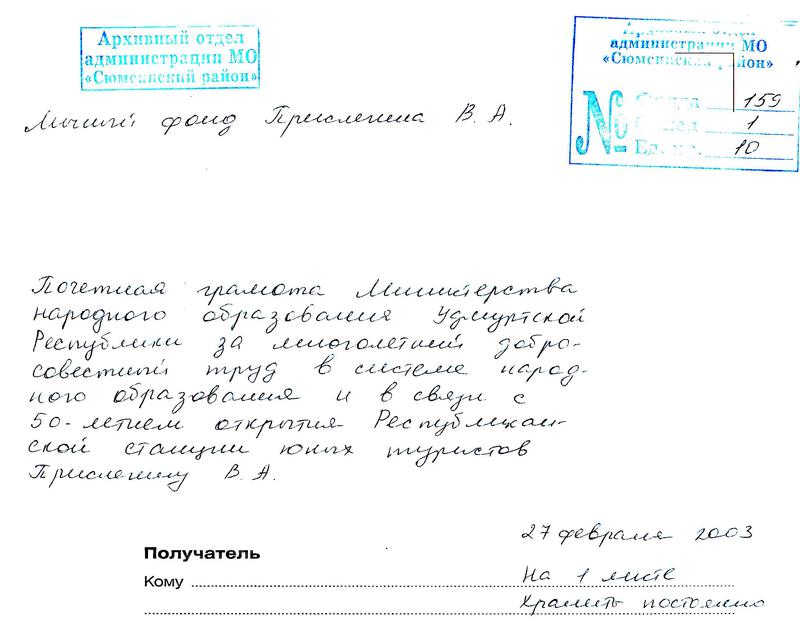 Архивный отдел
администрации МО
«Сюмсинский район»
Архивный отдел
администрации МО
«Сюмсинский район»
№ Фонда 159
Описи 1
Ед. хр. 10
Личный фонд Присленина В. А.
Почетная грамота Министерства
народного образования Удмуртской
Республики за многолетний добро-
совестный труд в системе народ-
ного образования и в связи с
50-летием открытия Республикан-
ской станции юных туристов
Присленину В. А.
27 февраля 2003
Получатель
Кому
На 1 листе
Хранить постоянно